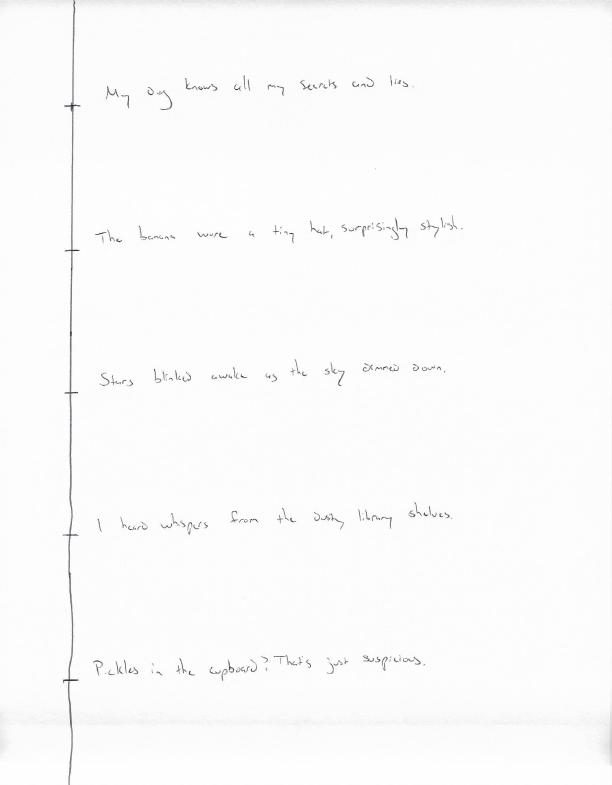 My dog knows all my secrets and lies.
The banana wore a tiny hat, surprisingly stylish.
Stars blinked awake as the sky dimmed down.
I heard whispers from the dusty library shelves.
Pickles in the cupboard? That's just suspicious.